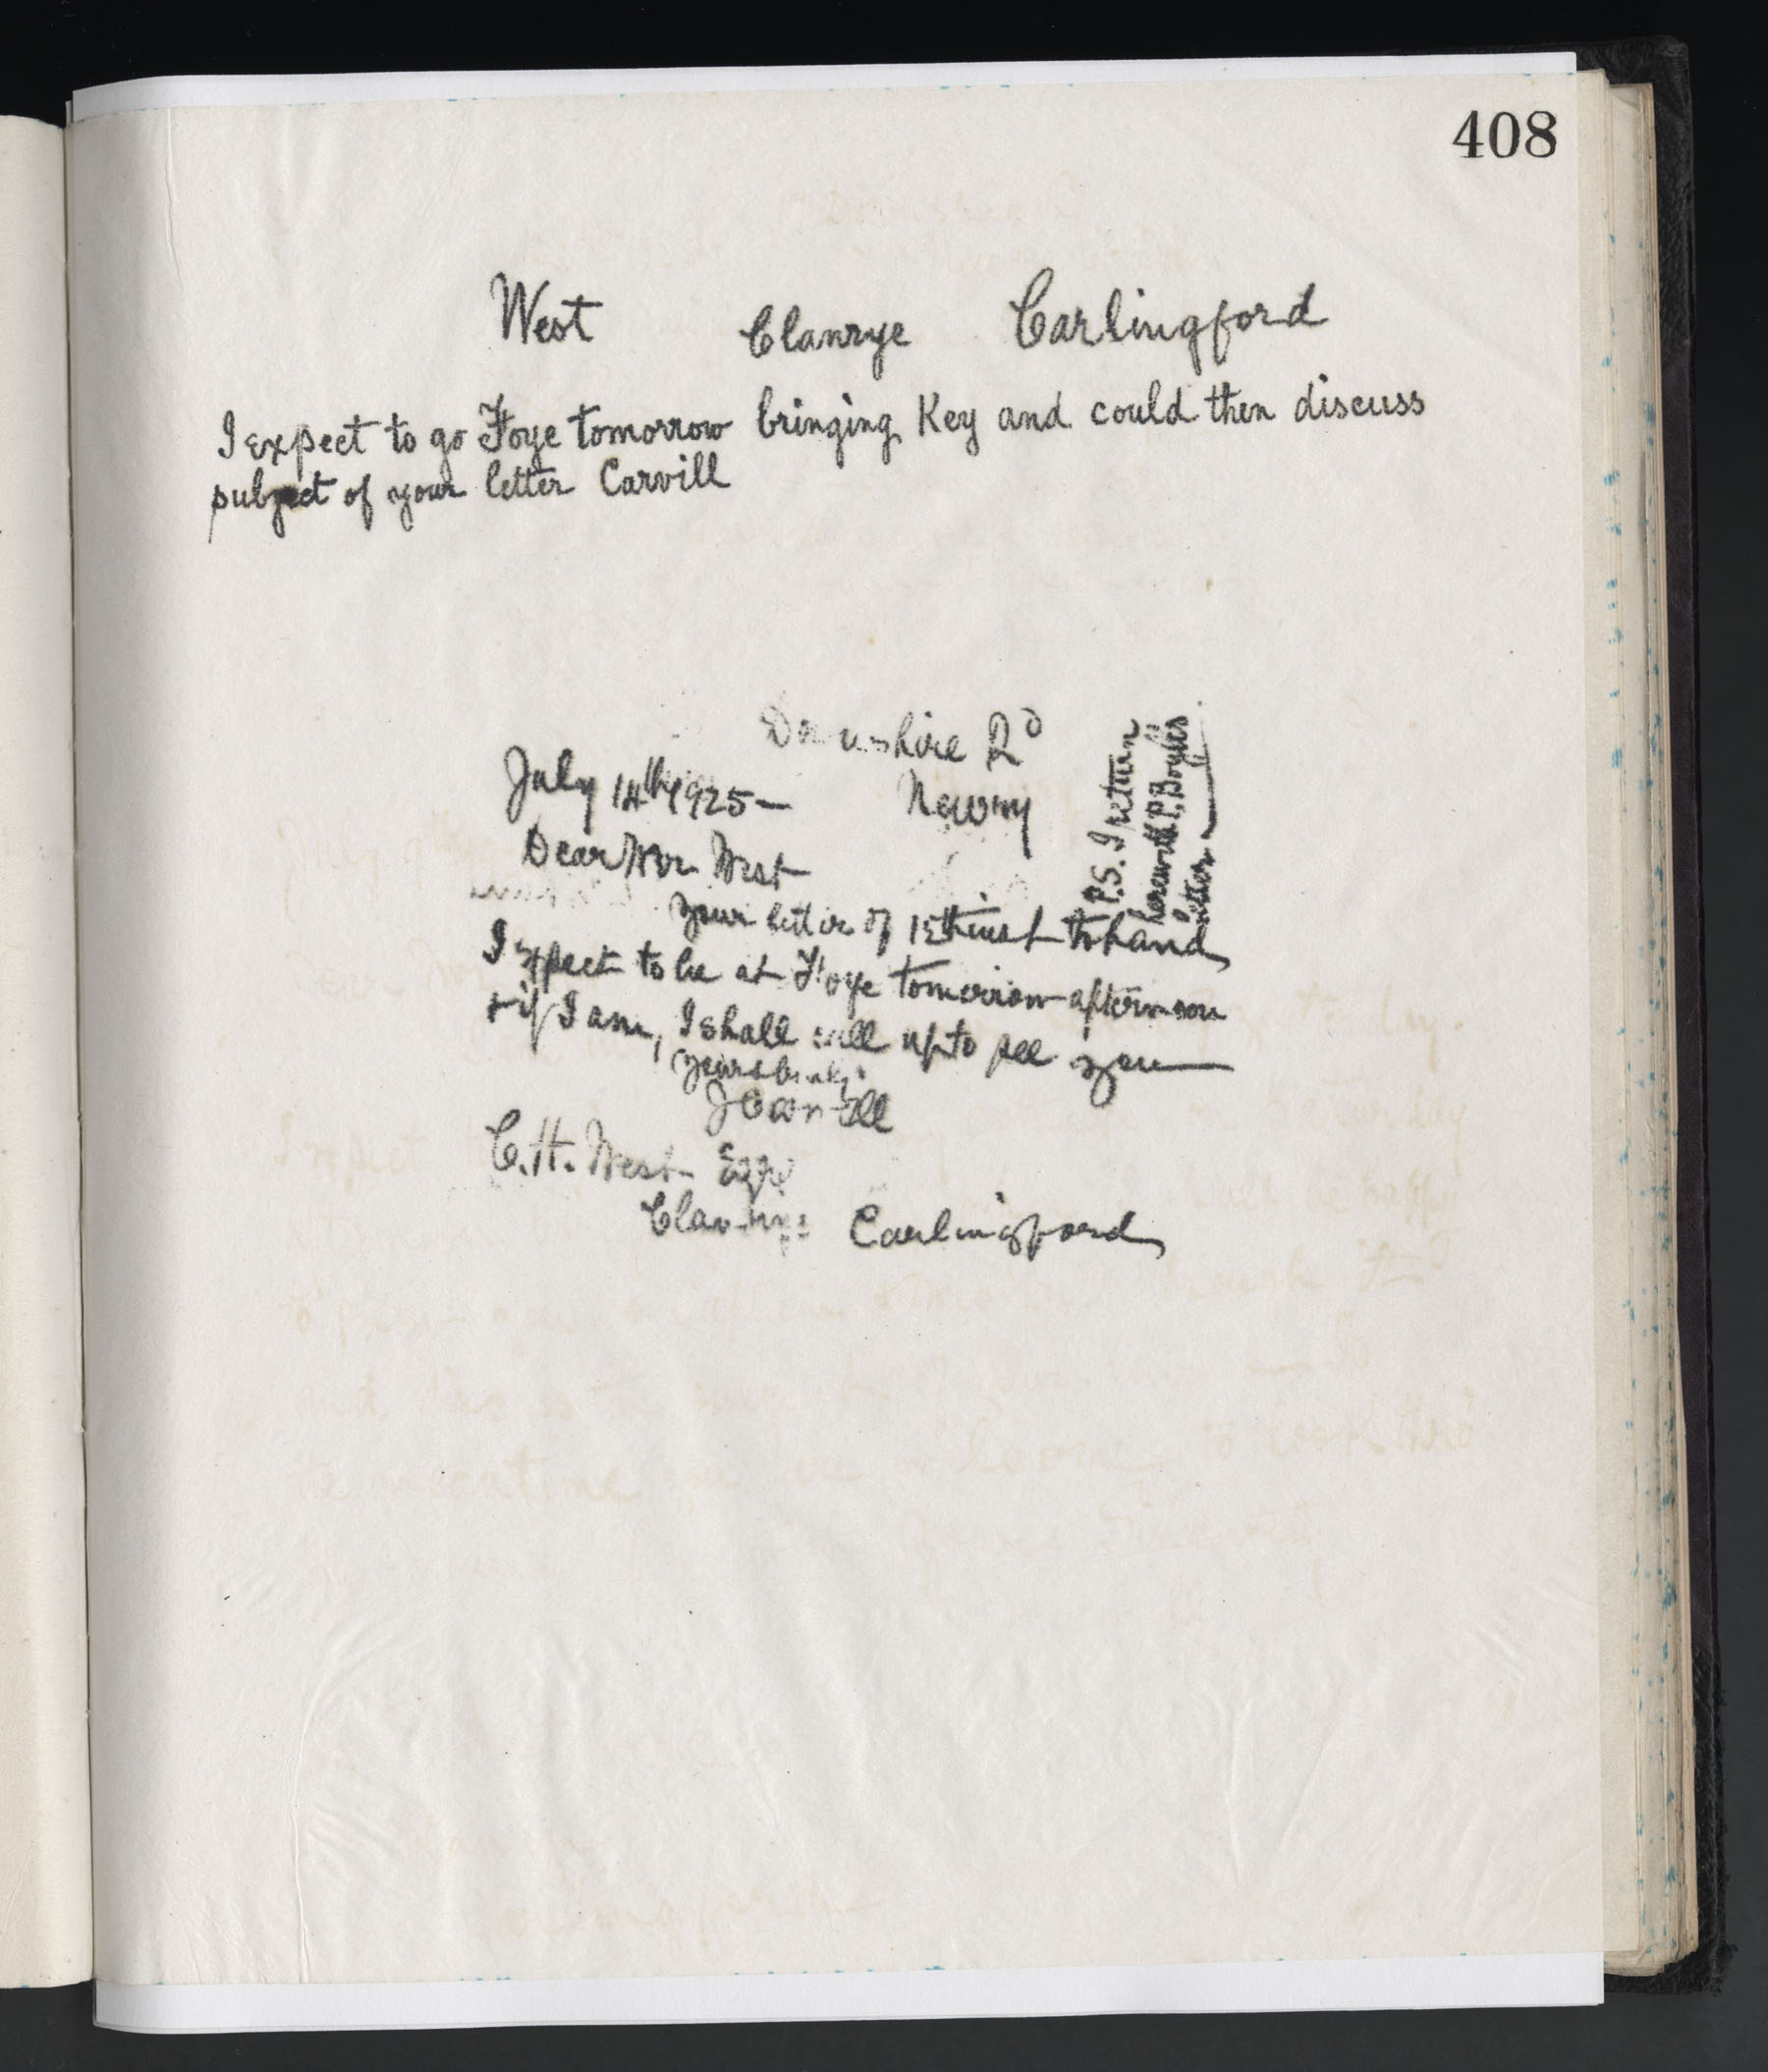 408
West Clanrye Carlingford
I expect to go Foye tomorrow bringing Key and could then discuss
subject of your letter Carvill
Downshire Rd
July 14th 1925 -
Newry
Dear Mr West
your letter of inst to hand
I expect to be at Foye tomorrow afternoon
+ if I am, I shall call up to see you
yours truly
JCarvill
C.H. West Esqre
Clanrye Carlingford
P.S. I return
herewith P. Boyle's
letter